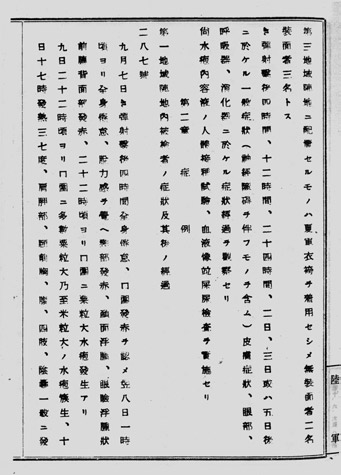 第三地域陣地ニ配置セルモノハ夏軍衣袴ヲ着用セシメ無裝面者二名
裝面者三名トス
キ彈射擊後四時間、十二時間、二十四時間、二日、三日或ハ五日後
ニ於ケル一般症狀(神經障碍ヲ伴フモノヲ含ム)皮膚症狀、眼部、
呼吸器、消化器ニ於ケル症狀經過ヲ觀察セリ
尙水疱內容液ノ人體接種試驗、血液像竝屎尿檢査ヲ實施セリ
第二章 症例
第一地域陣地內被檢者ノ症狀及其後ノ經過
二八七號
九月七日キ彈射擊後四時間全身倦怠、口圍發赤ヲ認メ
八日一時
頃ヨリ全身倦怠、脫力感ヲ覺ヘ胸部發赤、顏面浮腫、眼瞼浮腫狀
前膊背面部發赤、二十二時頃ヨリ口圍ニ粟粒大水疱發生アリ
九日二十二時頃ヨリ口圍ニ多數粟粒大乃至米粒大ノ水疱簇生、十
日十七時發熱三七度、肩胛部、四肢、陰囊一般ニ發
陸軍